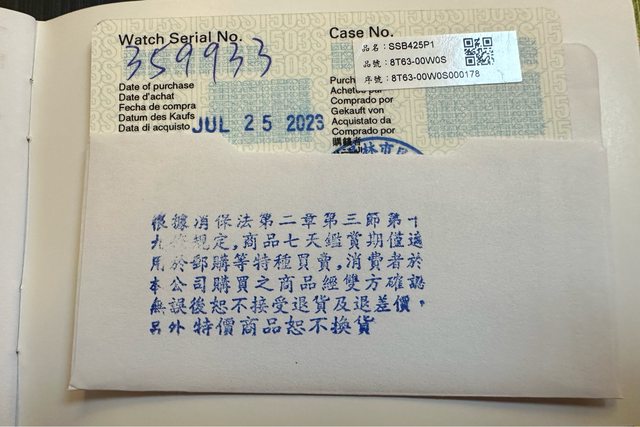 Watch Serial No.
359933
Date of purchase
Date d'achat
Fecha de compra
Datum des Kaufs
Data di acquisto
JUL 25 2023
Case No.
品名：SSB425P1
品號：8T63-00W0S
序號：8T63-00W0S000178
Purch
Achetée par
Comprado por
Gekauft von
Acquistato da
Comprado por
購錶者
林市
根據消保法第二章第三節第十
九條規定，商品七天鑑賞期僅適
用於郵購等特種買賣，消費者於
本公司購買之商品經雙方確認
無誤後恕不接受退貨及退差價。
另外特價商品恕不換貨